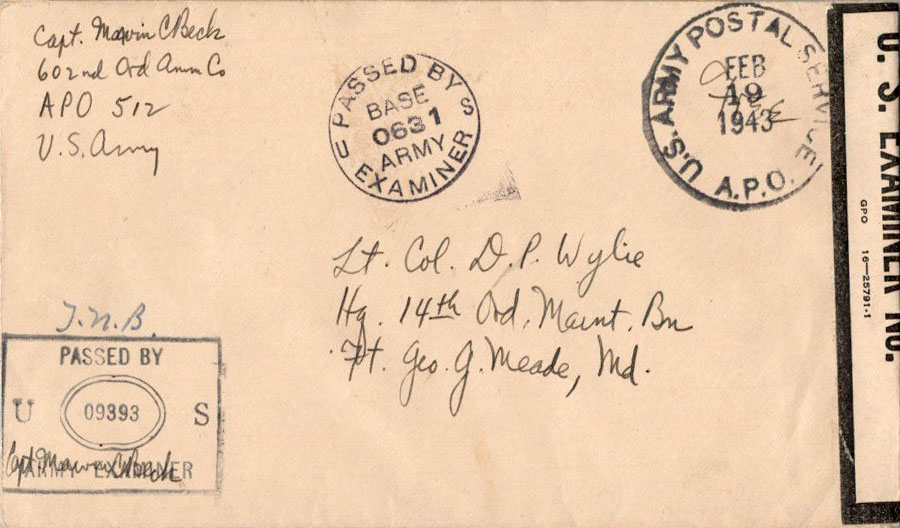 Capt. Marvin C Beck
602nd Ord Amm Co
APO 512
U.S. Army
PASSED BY
BASE
0631
ARMY
EXAMINER
U S
U.S. ARMY POSTAL SERVICE
FEB
19
1943
Free
A.P.O.
U. S. EXAMINER NO.
GPO 16—25791-1
Lt. Col. D. P. Wylie
Hq. 14th Ord. Maint. Bn
Ft. Geo. G. Meade, Md.
T.N.B.
PASSED BY
U 09393 S
ARMY EXAMINER
Capt. Marvin C Beck